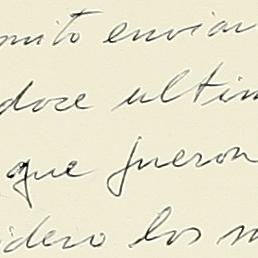 mito enviar
doce ultim
que fueron
idero los m